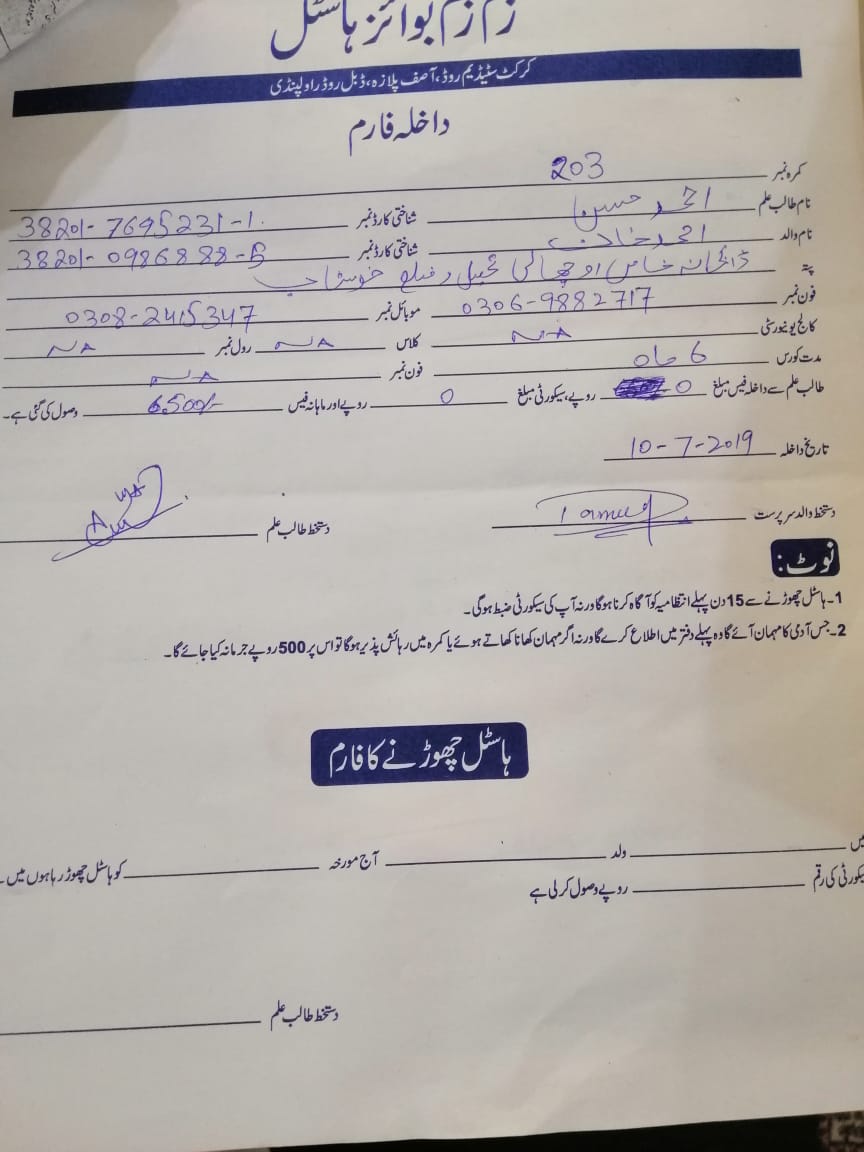 زم زم بوائز ہاسٹل
کرکٹ سٹیڈیم روڈ، آصف پلازہ، ڈبل روڈ راولپنڈی
داخلہ فارم
کمرہ نمبر 203
نام طالب علم احمد حسن شناختی کارڈ نمبر 38201-7695231-1
نام والد احمد خان شناختی کارڈ نمبر 38201-0986888-5
پتہ ڈاکخانہ خاص اوچھالی تحصیل و ضلع خوشاب
فون نمبر 0306-9882717 موبائل نمبر 0308-2415347
کالج یونیورسٹی NA کلاس NA رول نمبر NA
مدت کورس 6 ماہ فون نمبر NA
طالب علم سے داخلہ فیس مبلغ 0 روپے، سیکورٹی مبلغ 0 روپے اور ماہانہ فیس 6500/- وصول کی گئی ہے۔
تاریخ داخلہ 10-7-2019
دستخط والد سرپرست دستخط طالب علم
نوٹ:
1۔ ہاسٹل چھوڑنے سے 15 دن پہلے انتظامیہ کو آگاہ کرنا ہوگا ورنہ آپ کی سیکورٹی ضبط ہوگی۔
2۔ جس آدمی کا مہمان آئے گا وہ پہلے دفتر میں اطلاع کرے گا ورنہ اگر مہمان کھانا کھاتے ہوئے یا کمرہ میں رہائش پذیر ہوگا تو اس پر 500 روپے جرمانہ کیا جائے گا۔
ہاسٹل چھوڑنے کا فارم
میں ولد آج مورخہ کو ہاسٹل چھوڑ رہا ہوں میں نے
سیکورٹی کی رقم روپے وصول کر لی ہے
دستخط طالب علم